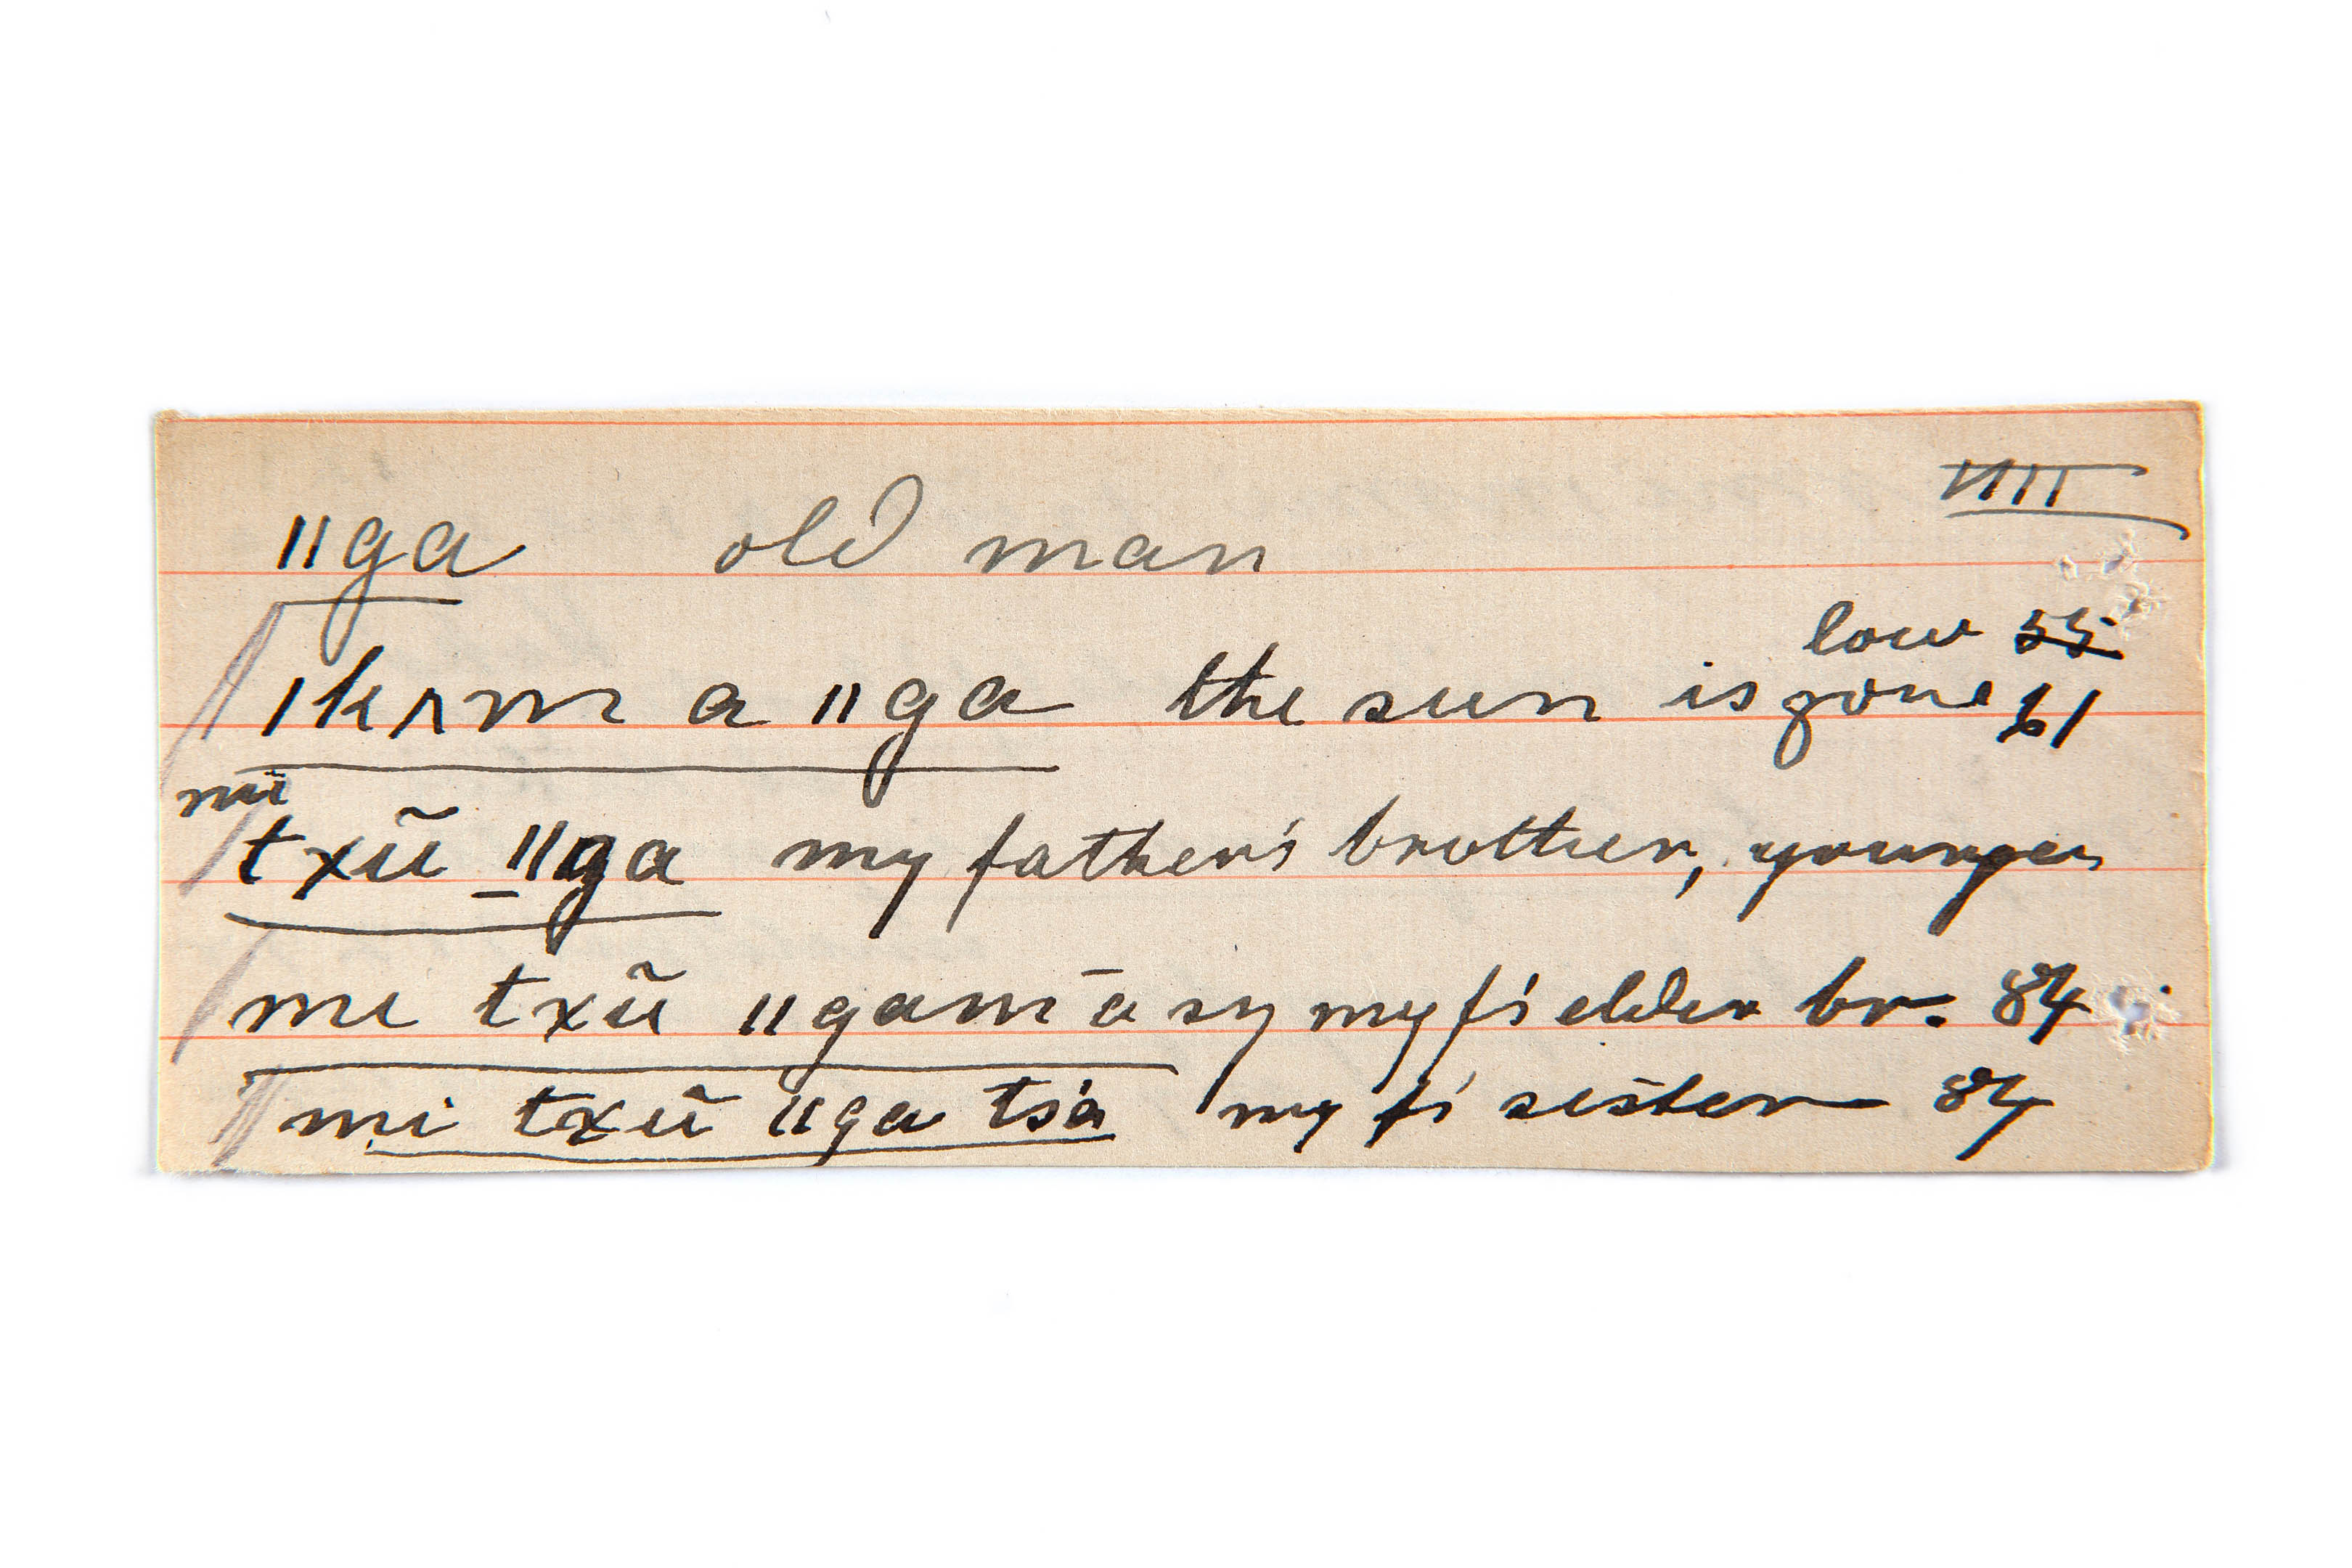 VIII
ǁga old man
low 55
ǀkʌm a ǁga the sun is gone 61
mi
txũ ǁga my father's brother, younger
mi txũ ǁgam āsy my f's elder br. 84
mi txũ ǁga tsá my f's sister 84